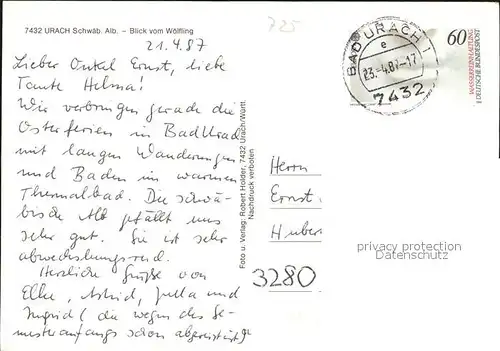 7432 URACH Schwäb. Alb. – Blick vom Wölfling
725
21.4.87
Lieber Onkel Ernst, liebe
Tante Helma!
Wir verbringen gerade die
Osterferien in Bad Urach
mit langen Wanderungen
und Baden im warmen
Thermalbad. Die schwä-
bische Alb gefällt uns
sehr gut. Sie ist sehr
abwechslungsreich.
Herzliche Grüße von
Elke, Astrid, Jutta und
Ingrid (die wegen des Se-
mesteranfangs schon abgereist ist)
Foto u. Verlag: Robert Holder, 7432 Urach/Württ.
Nachdruck verboten
BAD URACH 1
e
23.-4.87-17
7432
60
WASSERREINHALTUNG
DEUTSCHE BUNDESPOST
Herrn
Ernst
Huber
3280
privacy protection
Datenschutz